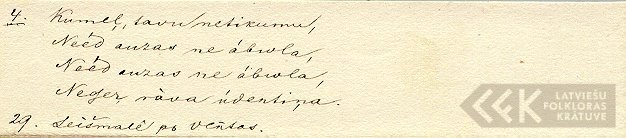 4. Kumeļ, tavu netikumu,
Neēd auzas ne ábola,
Neēd auzas ne ábola,
Neger, rāva údentiņa.
29. Leišmalē po Veñtas.
LATVIEŠU
FOLKLORAS
KRĀTUVE